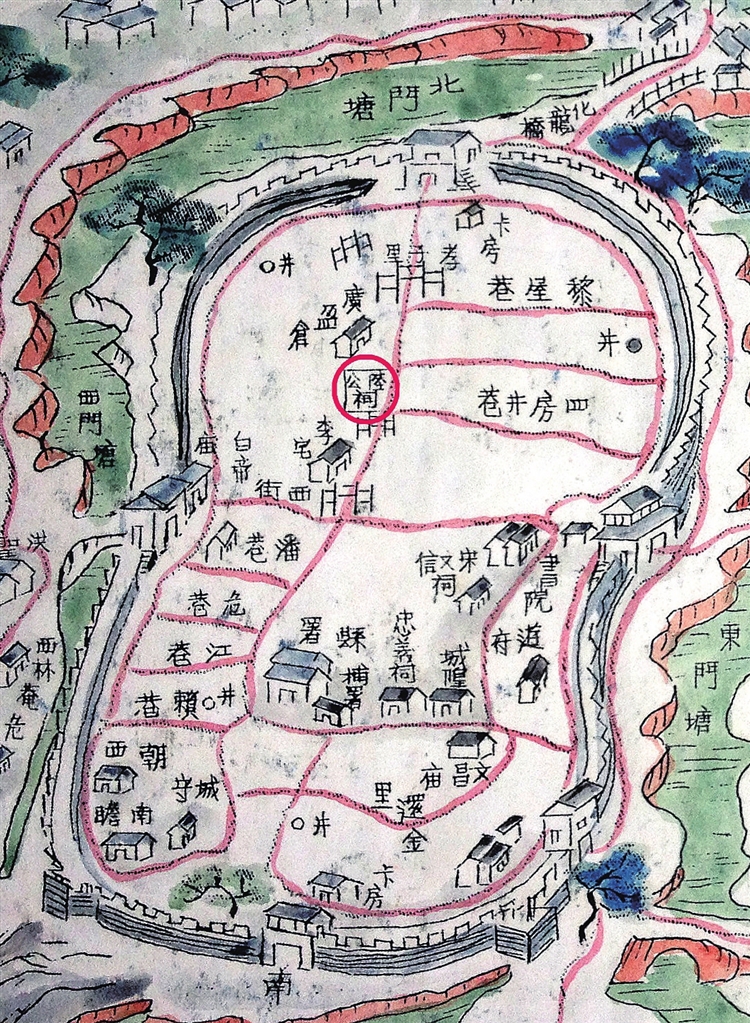 北門塘
化龍橋
卡房
孝子里
井
黎屋巷
廣盈倉
井
陸公祠
四房井巷
西門塘
李宅
白帝庙
西街
潘巷
宋文信祠
書院
道府
危巷
洪聖
江巷
縣署
捕署
忠義祠
城隍
東門塘
西林庵
危
賴巷
井
朝西
城守
文昌庙
還金里
井
南瞻
卡房
南